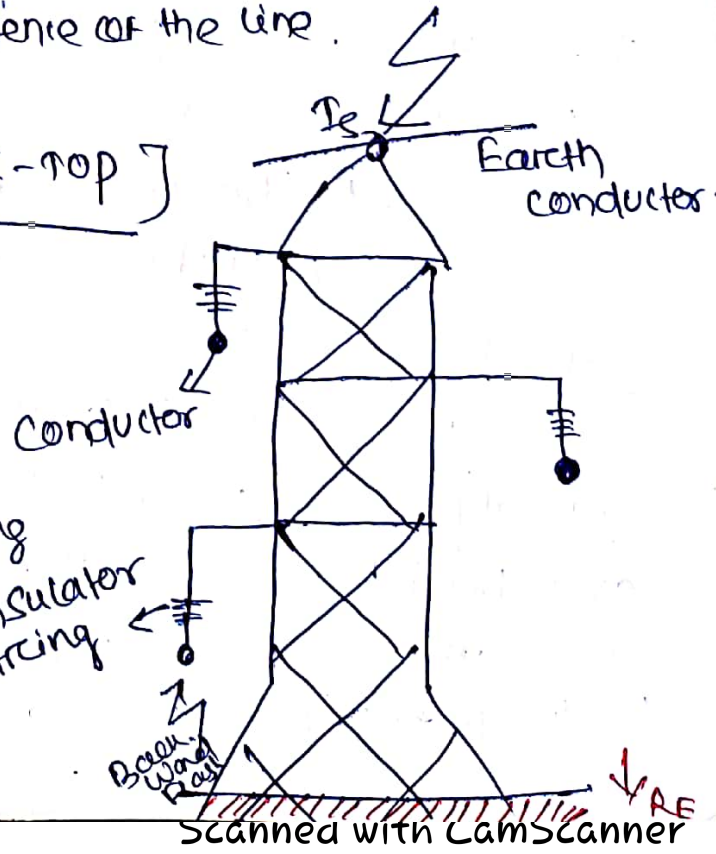 ence of the line.
Is
-TOP]
Earth
conductor
Conductor
g
sulator
rcing
Back
ward
RE
Scanned with CamScanner